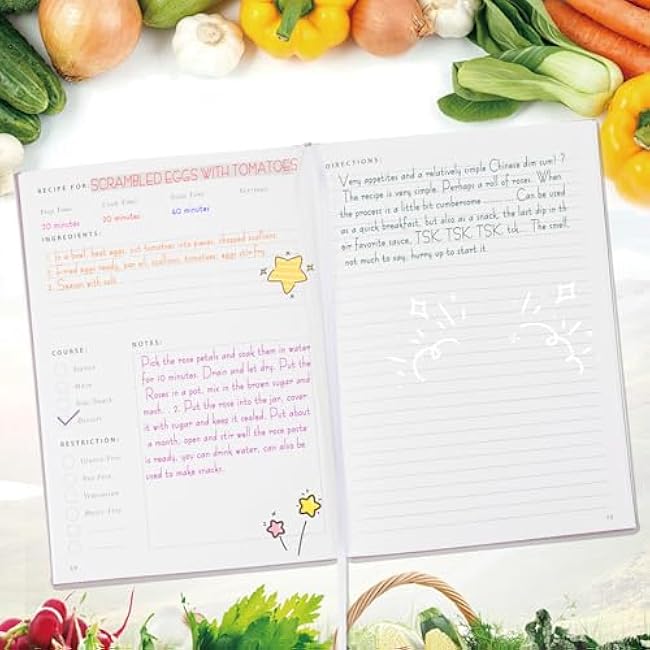 RECIPE FOR: SCRAMBLED EGGS WITH TOMATOES
Prep Time: Cook Time:
20 minutes 20 minutes 40 minutes
INGREDIENTS:
1. In a bowl, beat eggs, cut tomatoes into pieces, chopped scallions.
2. Fried eggs ready, pan oil, scallions, tomatoes, eggs stir-fry.
3. Season with salt.
COURSE:
Main
Dessert
RESTRICTION:
Gluten-Free
Vegetarian
NOTES:
Pick the rose petals and soak them in water
for 10 minutes. Drain and let dry. Put the
Roses in a pot, mix in the brown sugar and
mash. . 2. Put the rose into the jar, cover
it with sugar and keep it sealed. Put about
a month, open and stir well the rose paste
is ready, you can drink water, can also be
used to make snacks.
DIRECTIONS:
Very appetites and a relatively simple Chinese dim sum! ?
The recipe is very simple. Perhaps a roll of roses. When
the process is a little bit cumbersome ........ Can be used
as a quick breakfast, but also as a snack, the last dip in th
eir favorite sauce, TSK TSK TSK tsk... The smell,
not much to say, hurry up to start it.